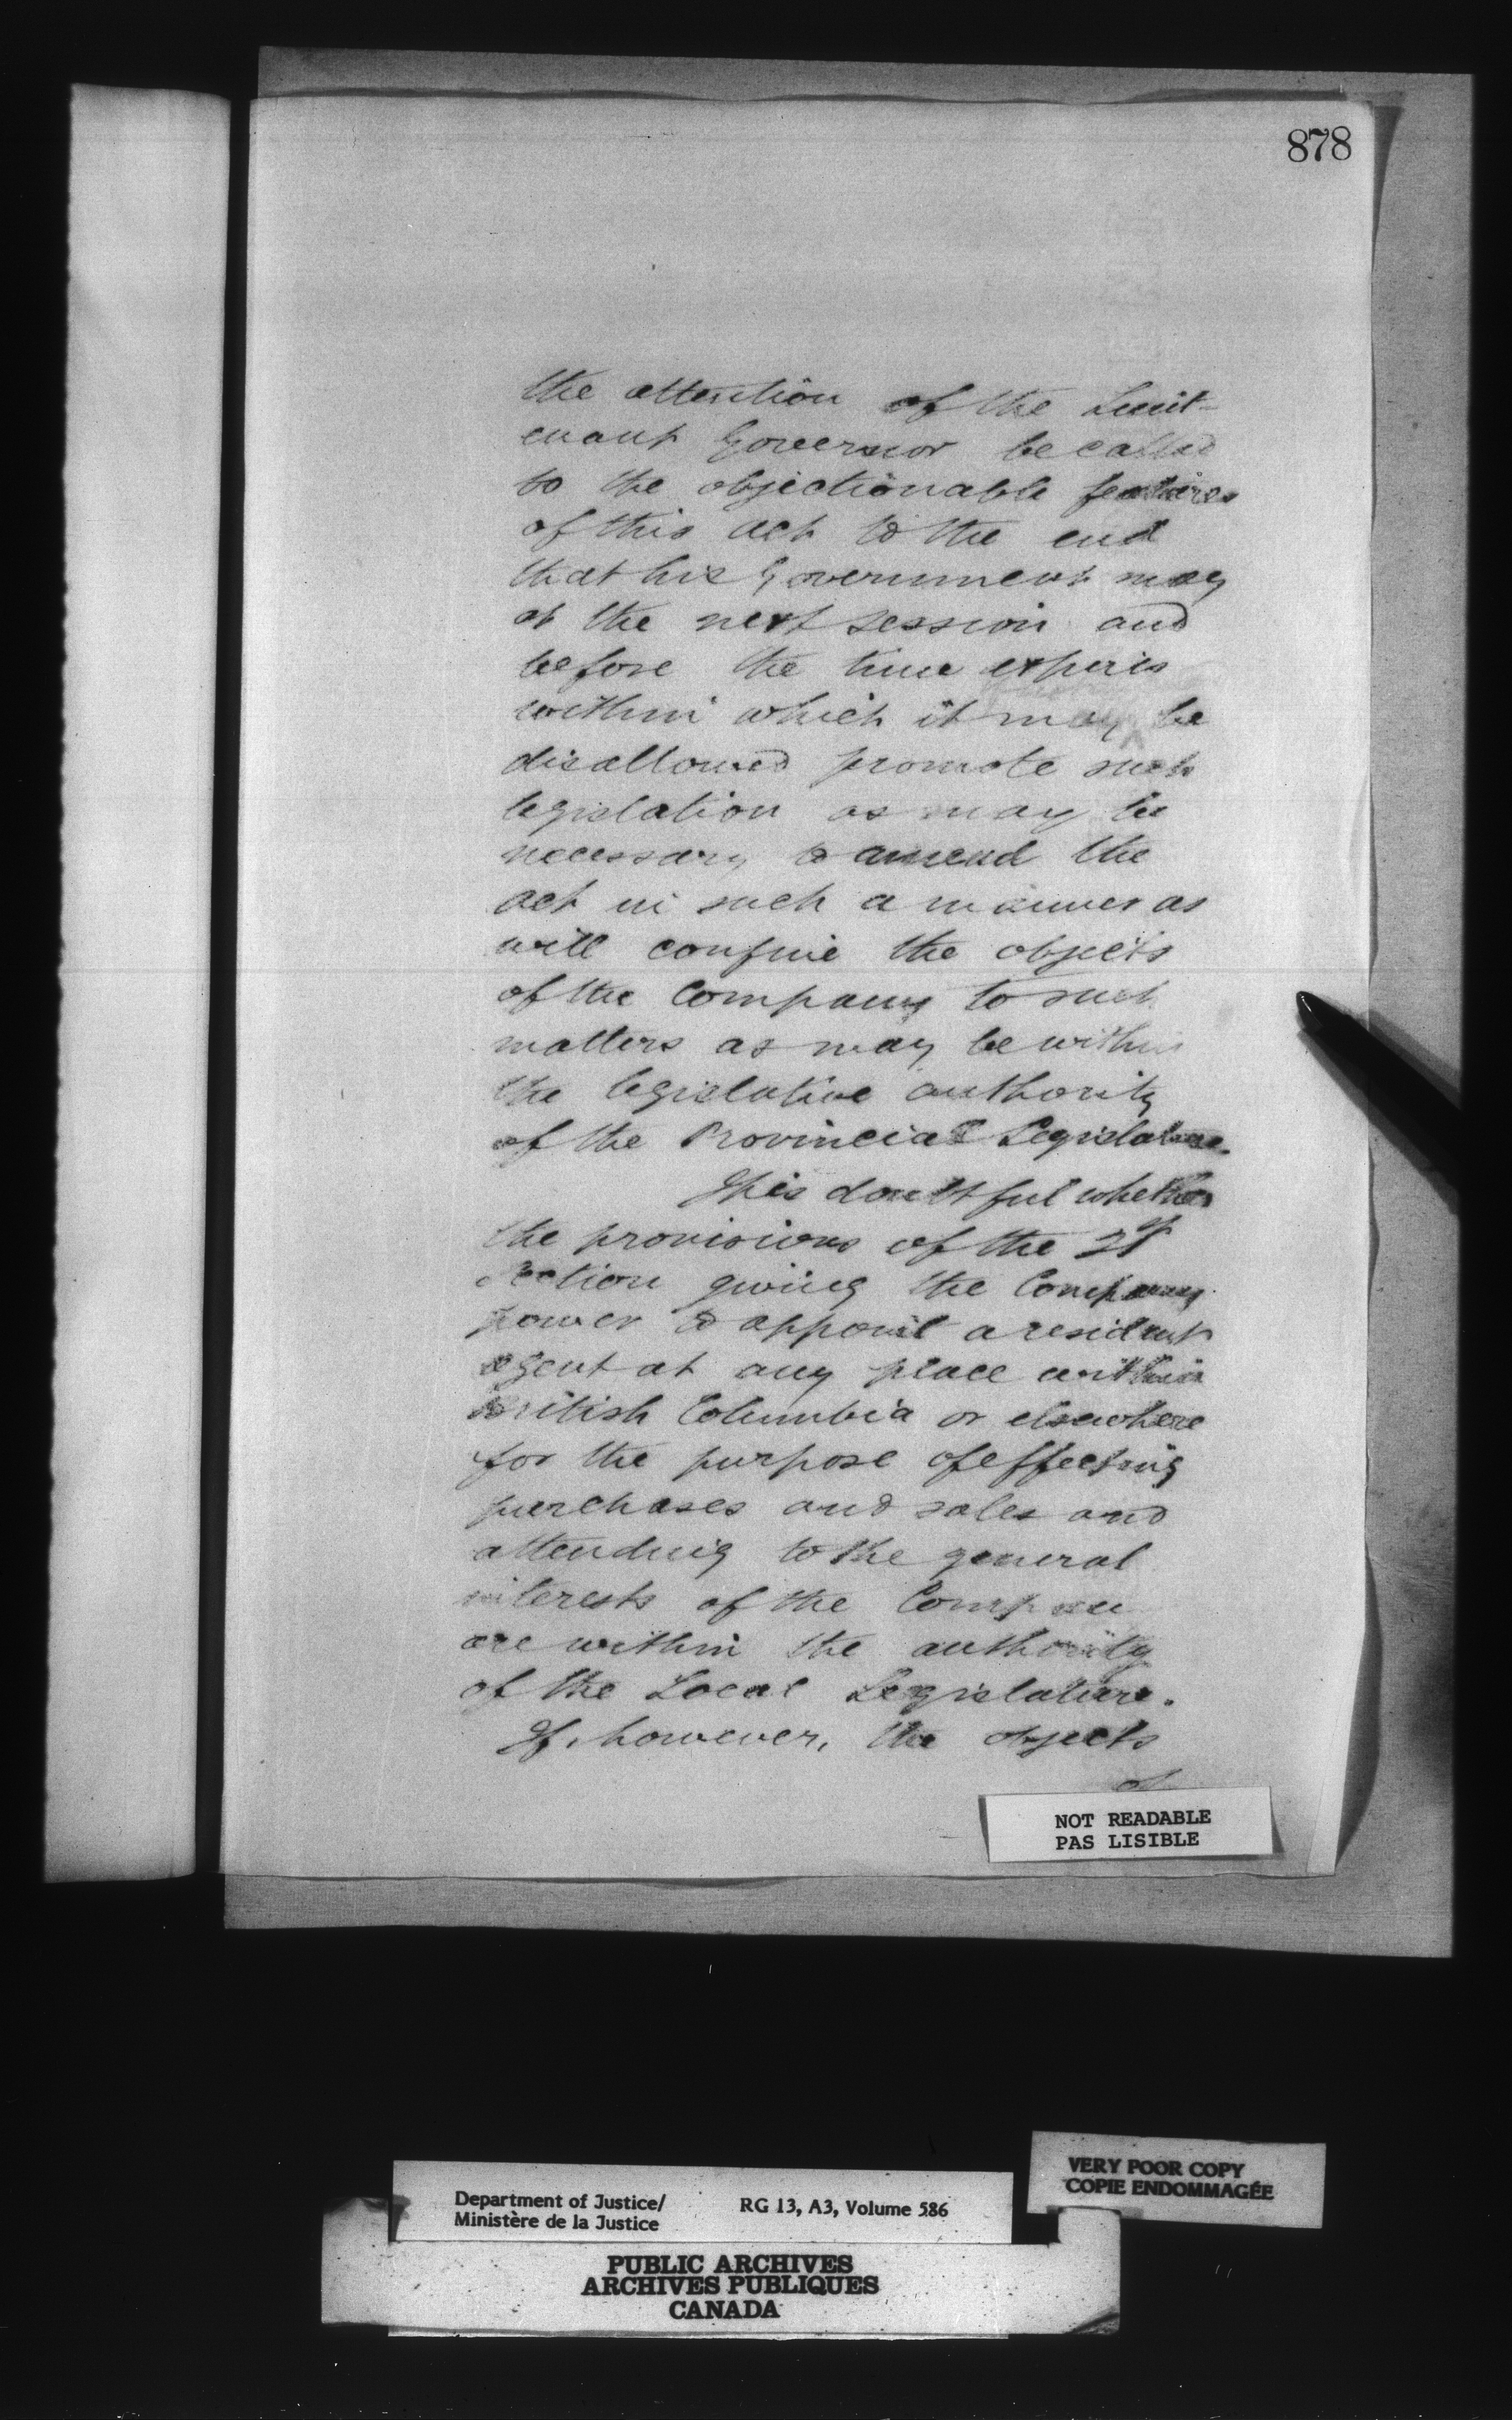 878
the attention of the Lieut-
enant Governor be called
to the objectionable features
of this act to the end
that his Government may
at the next session and
before the time expires
within which it may be
disallowed promote such
legislation as may be
necessary to amend the
act in such a manner as
will confine the objects
of the Company to such
matters as may be within
the legislative authority
of the Provincial Legislature.
It is doubtful whether
the provisions of the
section giving the Company
power to appoint a resident
agent at any place within
British Columbia or elsewhere
for the purpose of effecting
purchases and sales and
attending to the general
interests of the Company
are within the authority
of the Local Legislature.
If, however, the objects
of
NOT READABLE
PAS LISIBLE
VERY POOR COPY
COPIE ENDOMMAGÉE
Department of Justice/ RG 13, A3, Volume 586
Ministère de la Justice
PUBLIC ARCHIVES
ARCHIVES PUBLIQUES
CANADA